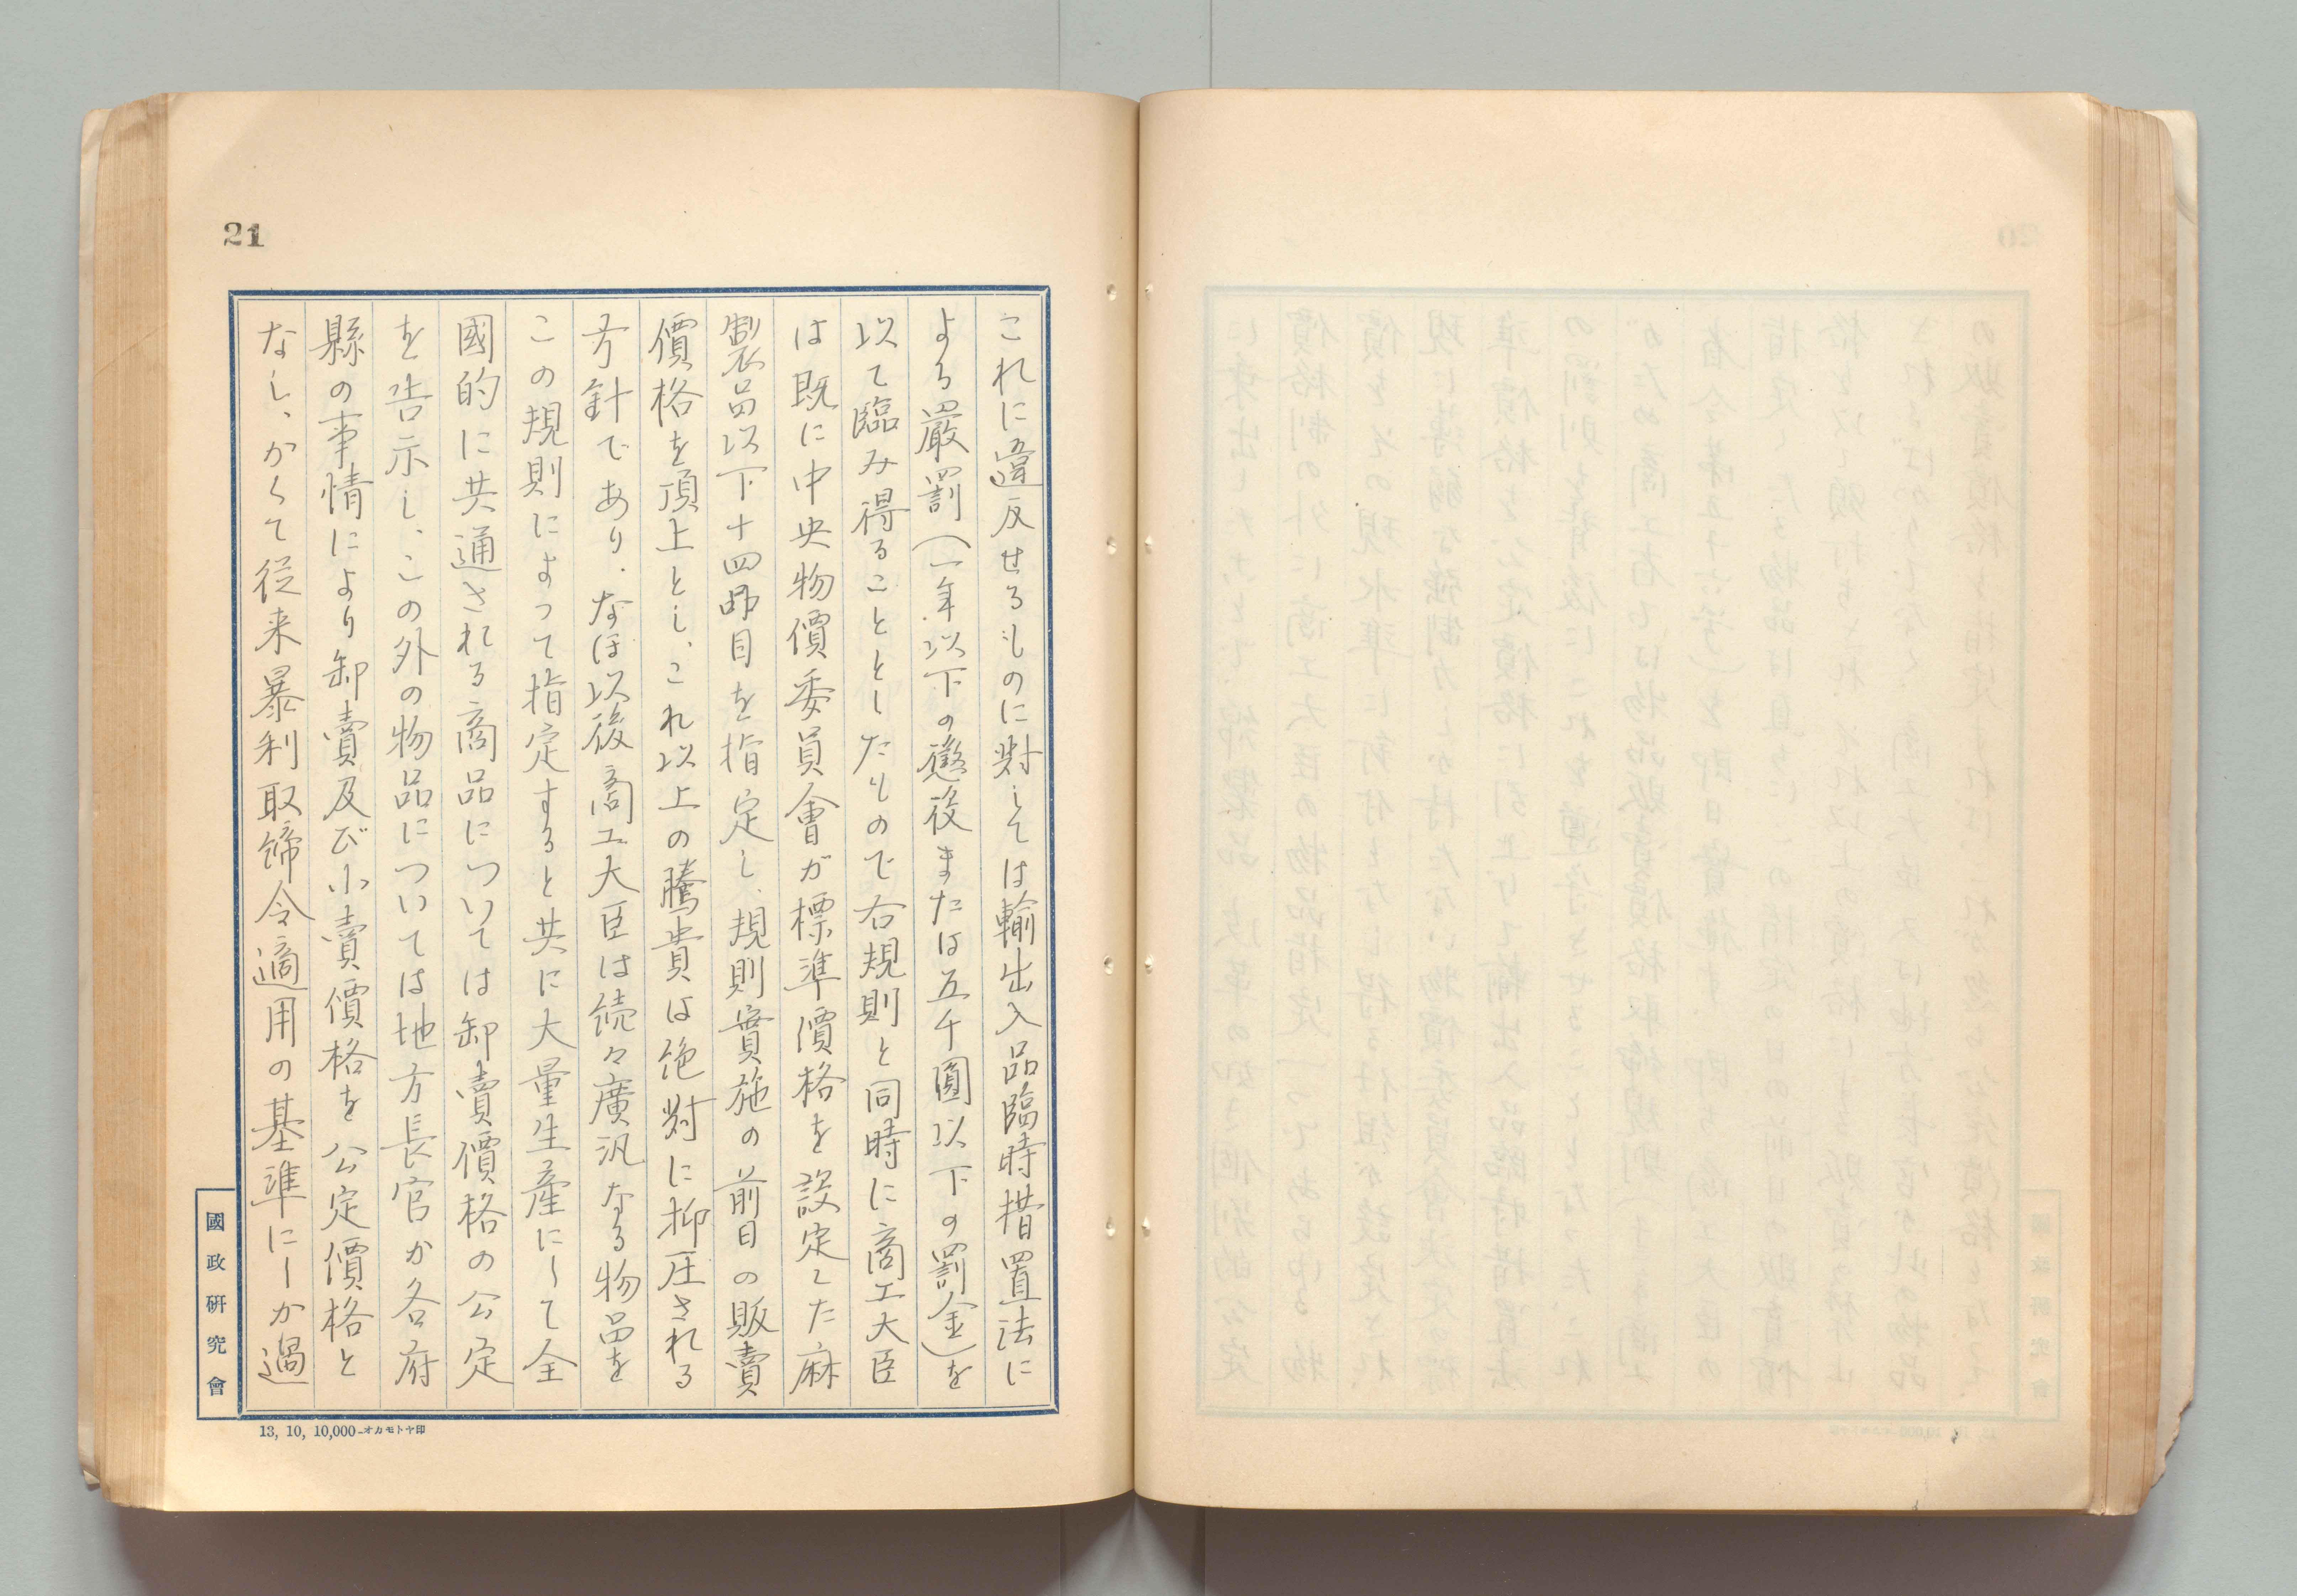 21
これに違反せるものに対しては輸出入品臨時措置法に
よる嚴罰(一年以下の懲役または五千圓以下の罰金)を
以て臨み得ることとしたもので右規則と同時に商工大臣
は既に中央物價委員會が標準價格を設定した麻
製品以下十四品目を指定し、規則實施の前日の販賣
價格を頂上とし、これ以上の騰貴は絶対に抑圧される
方針であり.なほ以後商工大臣は続々廣汎なる物品を
この規則によって指定すると共に大量生産にして全
國的に共通される商品については卸賣價格の公定
を告示し、この外の物品については地方長官か各府
縣の事情により卸賣及び小賣價格を公定價格と
なし、かくて従来暴利取締令適用の基準にしか過
國政研究會
13, 10, 10,000-オカモトヤ印